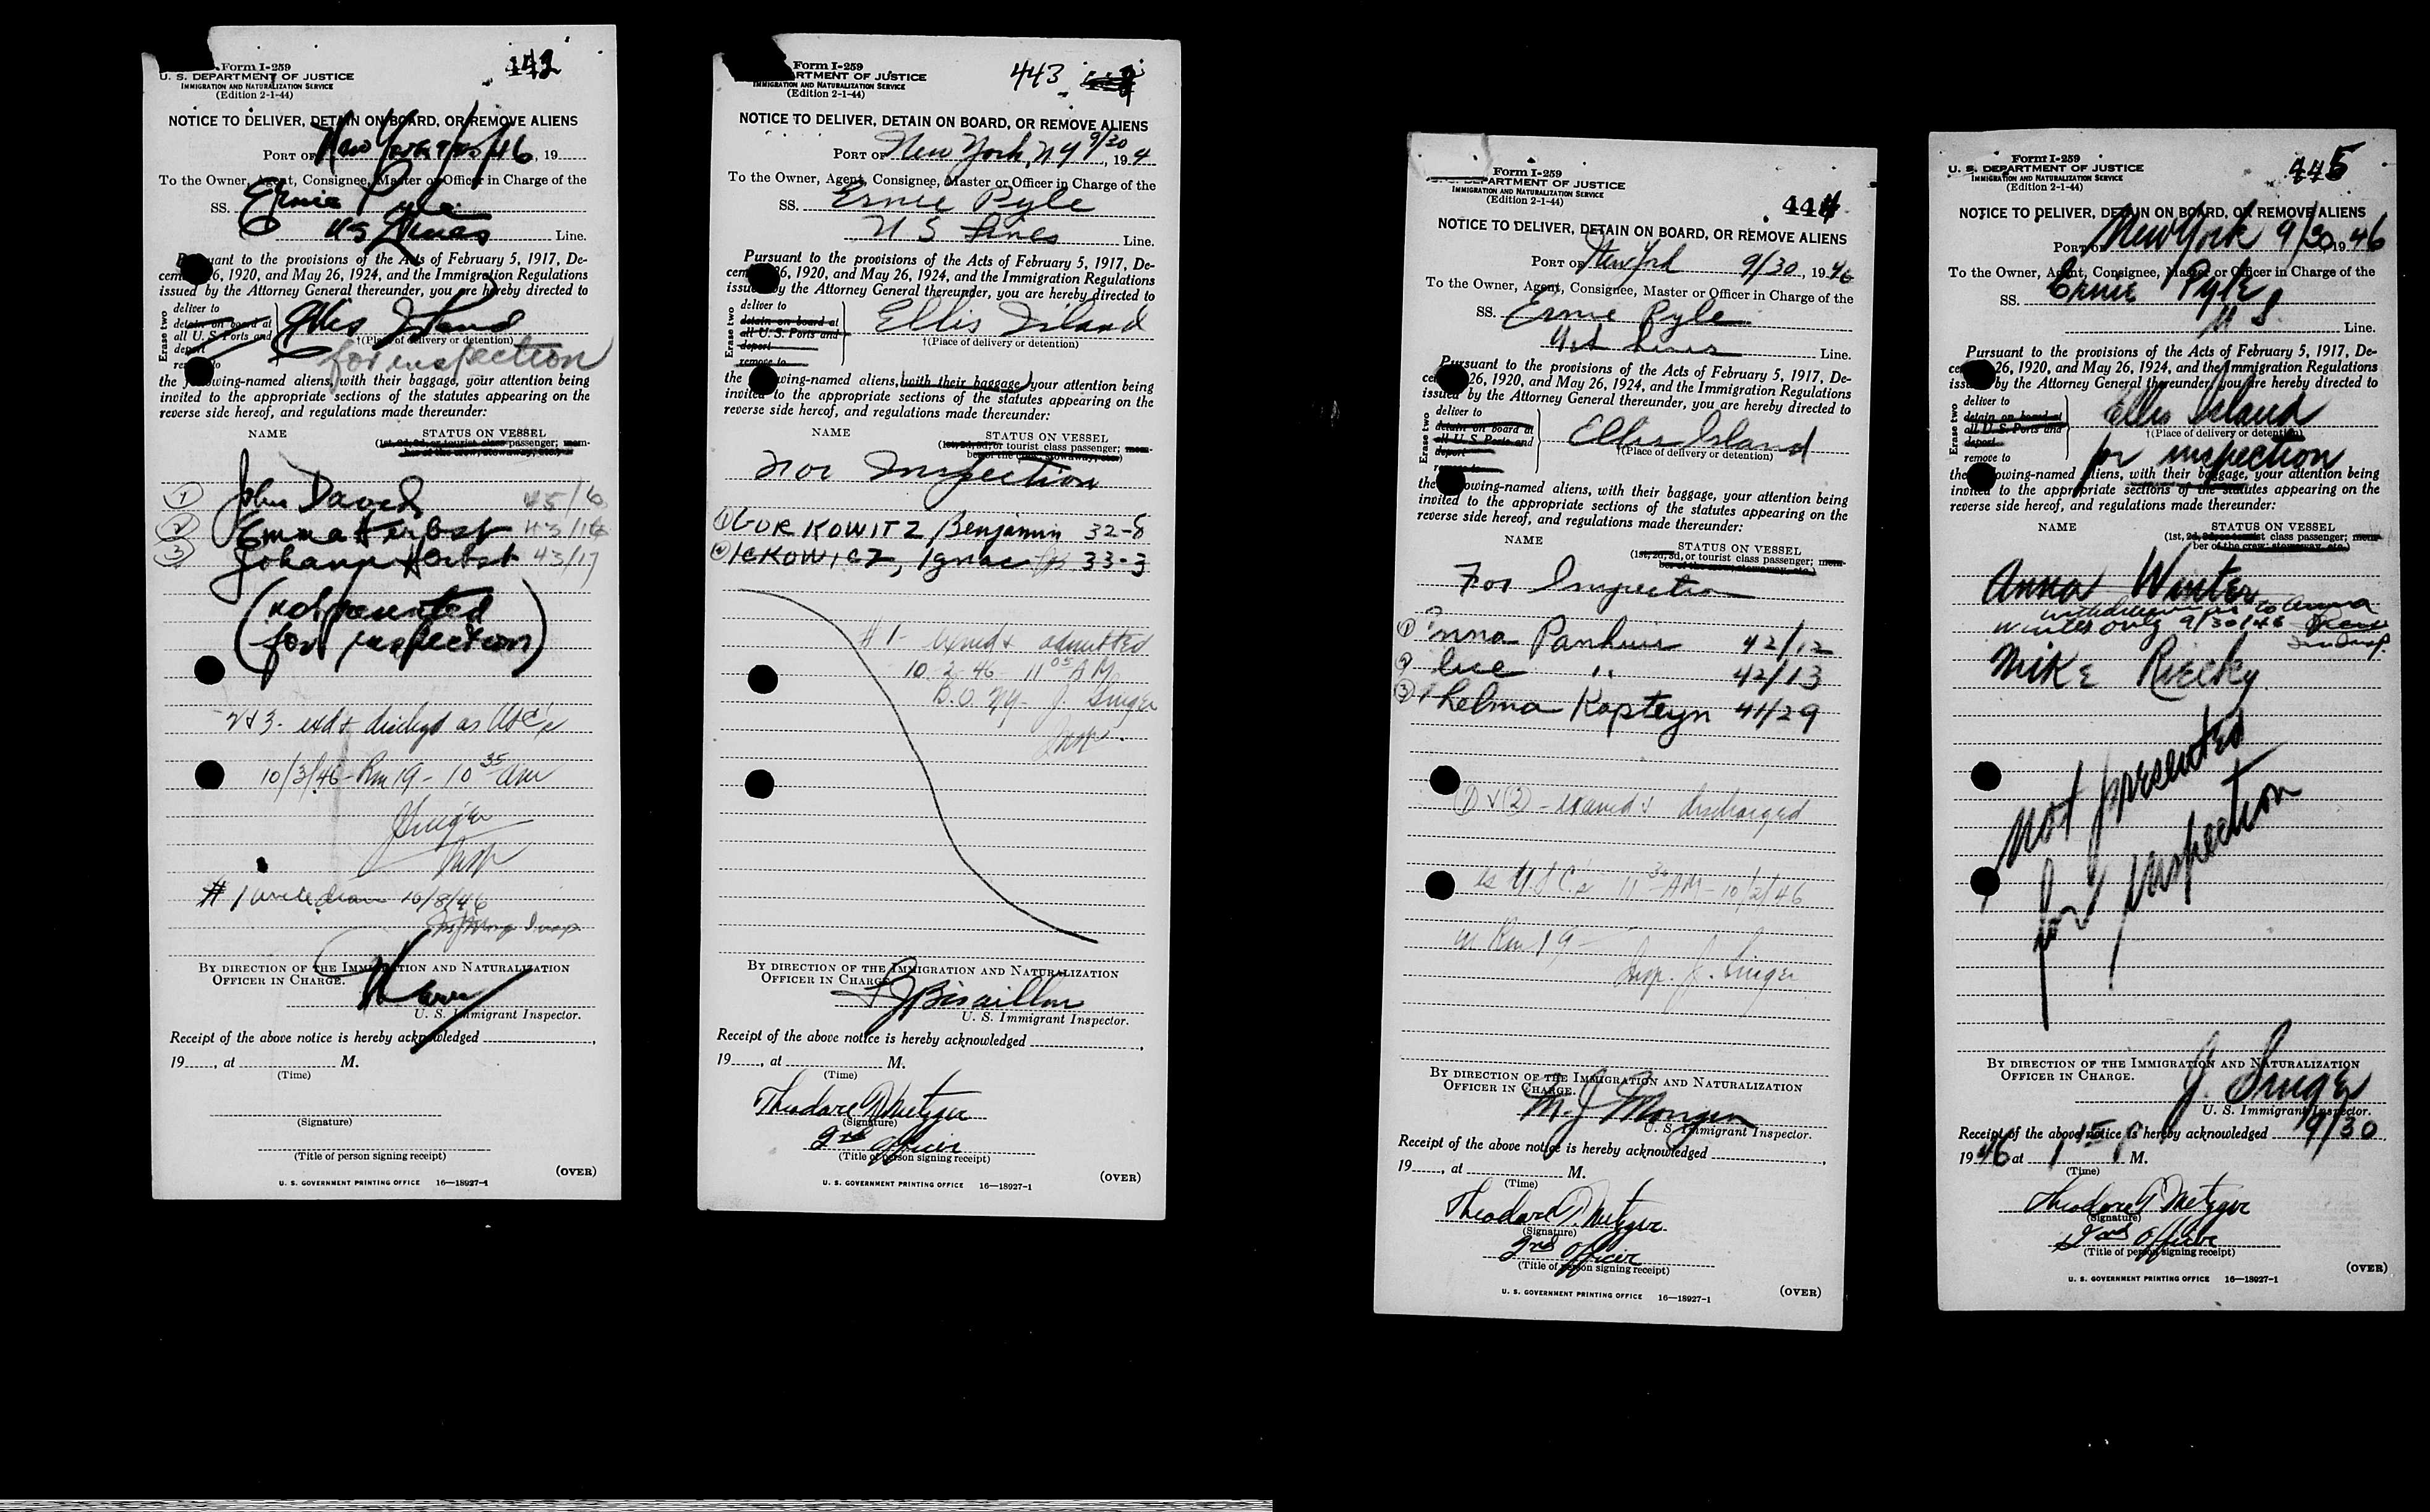 Form I-259
442
U. S. DEPARTMENT OF JUSTICE
IMMIGRATION AND NATURALIZATION SERVICE
(Edition 2-1-44)
NOTICE TO DELIVER, DETAIN ON BOARD, OR REMOVE ALIENS
PORT OF New York 9/30/46, 19
To the Owner, Agent, Consignee, Master or Officer in Charge of the
SS. Ernie Pyle
US Lines Line.
Pursuant to the provisions of the Acts of February 5, 1917, De-
cember 26, 1920, and May 26, 1924, and the Immigration Regulations
issued by the Attorney General thereunder, you are hereby directed to
Erase two
deliver to
detain on board at
all U. S. Ports and
deport
remove to
Ellis Island
†(Place of delivery or detention)
for inspection
the following-named aliens, with their baggage, your attention being
invited to the appropriate sections of the statutes appearing on the
reverse side hereof, and regulations made thereunder:
NAME STATUS ON VESSEL
(1st, 2d, 3d, or tourist class passenger; mem-
ber of the crew, stowaway, etc.)
1 John David 45/6
2 Emma Herbst 43/16
3 Johann Herbst 43/17
(not presented
for inspection)
2 & 3 - exd & dischgd as USC's
10/3/46 - Rm 19 - 10 35 am
J Singer
Insp
# 1 withdrawn 10/8/46
Insp
BY DIRECTION OF THE IMMIGRATION AND NATURALIZATION
OFFICER IN CHARGE.
U. S. Immigrant Inspector.
Receipt of the above notice is hereby acknowledged
19, at M.
(Time)
(Signature)
(Title of person signing receipt)
(OVER)
U. S. GOVERNMENT PRINTING OFFICE 16—18927-1
Form I-259
443
DEPARTMENT OF JUSTICE
IMMIGRATION AND NATURALIZATION SERVICE
(Edition 2-1-44)
NOTICE TO DELIVER, DETAIN ON BOARD, OR REMOVE ALIENS
PORT OF New York, NY 9/30, 194
To the Owner, Agent, Consignee, Master or Officer in Charge of the
SS. Ernie Pyle
U S Lines Line.
Pursuant to the provisions of the Acts of February 5, 1917, De-
cember 26, 1920, and May 26, 1924, and the Immigration Regulations
issued by the Attorney General thereunder, you are hereby directed to
Erase two
deliver to
detain on board at
all U. S. Ports and
deport
remove to
Ellis Island
†(Place of delivery or detention)
the following-named aliens, with their baggage, your attention being
invited to the appropriate sections of the statutes appearing on the
reverse side hereof, and regulations made thereunder:
NAME STATUS ON VESSEL
(1st, 2d, 3d, or tourist class passenger; mem-
ber of the crew, stowaway, etc.)
For Inspection
1 GORKOWITZ, Benjamin 32-8
2 ICKOWICZ, Ignac 33-3
# 1 - examd & admitted
10-2-46 11 05 AM
B.O. NY - J. Singer
Insp.
BY DIRECTION OF THE IMMIGRATION AND NATURALIZATION
OFFICER IN CHARGE.
Bisaillon
U. S. Immigrant Inspector.
Receipt of the above notice is hereby acknowledged
19, at M.
(Time)
Theodore T. Metzger
(Signature)
2nd Officer
(Title of person signing receipt)
(OVER)
U. S. GOVERNMENT PRINTING OFFICE 16—18927-1
Form I-259
444
DEPARTMENT OF JUSTICE
IMMIGRATION AND NATURALIZATION SERVICE
(Edition 2-1-44)
NOTICE TO DELIVER, DETAIN ON BOARD, OR REMOVE ALIENS
PORT OF New York 9/30, 1946
To the Owner, Agent, Consignee, Master or Officer in Charge of the
SS. Ernie Pyle
U S Lines Line.
Pursuant to the provisions of the Acts of February 5, 1917, De-
cember 26, 1920, and May 26, 1924, and the Immigration Regulations
issued by the Attorney General thereunder, you are hereby directed to
Erase two
deliver to
detain on board at
all U. S. Ports and
deport
remove to
Ellis Island
†(Place of delivery or detention)
the following-named aliens, with their baggage, your attention being
invited to the appropriate sections of the statutes appearing on the
reverse side hereof, and regulations made thereunder:
NAME STATUS ON VESSEL
(1st, 2d, 3d, or tourist class passenger; mem-
ber of the crew, stowaway, etc.)
For Inspection
1 Anna Panhuis 42/12
2 " 42/13
3 Thelma Kapteyn 41/29
1 & 2 - examd & discharged
as U.S.C.'s 11 30 AM - 10/2/46
in Rm 19 -
Insp. J. Singer
BY DIRECTION OF THE IMMIGRATION AND NATURALIZATION
OFFICER IN CHARGE.
M. J. Mongan
U. S. Immigrant Inspector.
Receipt of the above notice is hereby acknowledged
19, at M.
(Time)
Theodore T. Metzger
(Signature)
2nd Officer
(Title of person signing receipt)
(OVER)
U. S. GOVERNMENT PRINTING OFFICE 16—18927-1
Form I-259
445
U. S. DEPARTMENT OF JUSTICE
IMMIGRATION AND NATURALIZATION SERVICE
(Edition 2-1-44)
NOTICE TO DELIVER, DETAIN ON BOARD, OR REMOVE ALIENS
PORT OF New York 9/30 1946
To the Owner, Agent, Consignee, Master or Officer in Charge of the
SS. Ernie Pyle
U S. Line.
Pursuant to the provisions of the Acts of February 5, 1917, De-
cember 26, 1920, and May 26, 1924, and the Immigration Regulations
issued by the Attorney General thereunder, you are hereby directed to
Erase two
deliver to
detain on board at
all U. S. Ports and
deport
remove to
Ellis Island
†(Place of delivery or detention)
for inspection
the following-named aliens, with their baggage, your attention being
invited to the appropriate sections of the statutes appearing on the
reverse side hereof, and regulations made thereunder:
NAME STATUS ON VESSEL
(1st, 2d, 3d, or tourist class passenger; mem-
ber of the crew, stowaway, etc.)
Anna Winter
withdrawn as to Anna
Winter only 9/30/46
Mike Riecky
not presented
for inspection
BY DIRECTION OF THE IMMIGRATION AND NATURALIZATION
OFFICER IN CHARGE.
J. Singer
U. S. Immigrant Inspector.
Receipt of the above notice is hereby acknowledged 9/30
1946 at 1 15 P M.
(Time)
Theodore T. Metzger
(Signature)
2nd Officer
(Title of person signing receipt)
(OVER)
U. S. GOVERNMENT PRINTING OFFICE 16—18927-1